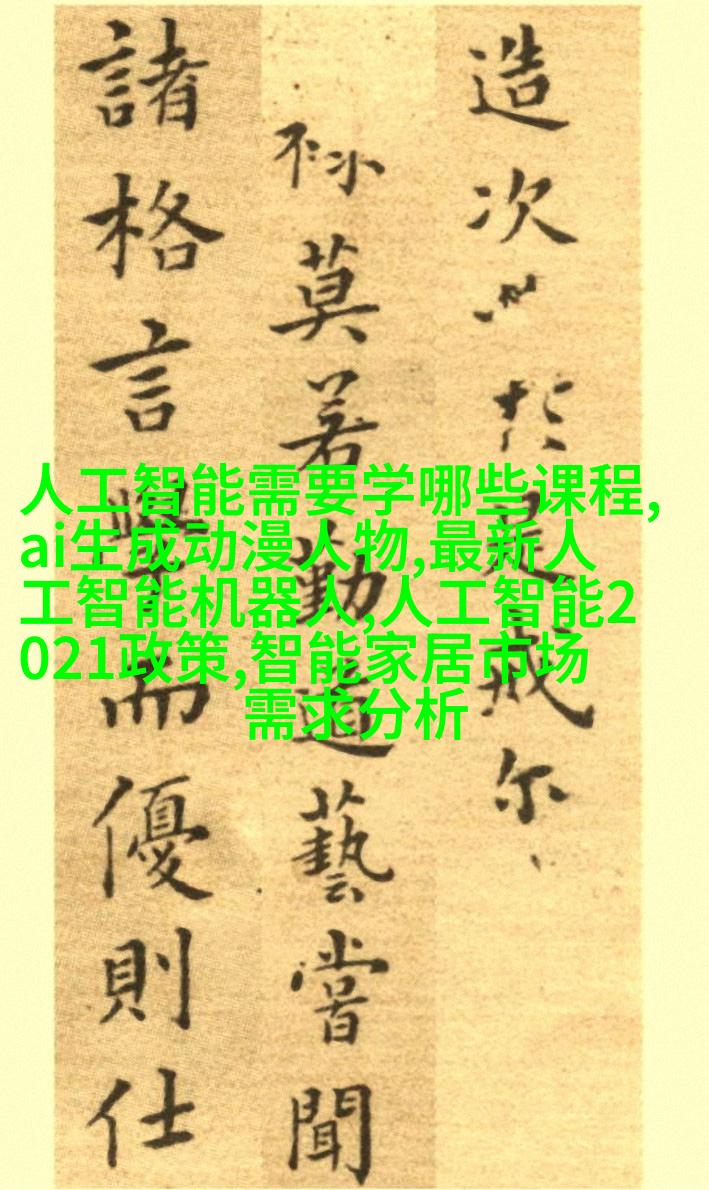 造次於是戒尔
莫若勤道藝嘗聞
諸格言學而優則仕
人工智能需要学哪些课程,
ai生成动漫人物,最新人
工智能机器人,人工智能2
021政策,智能家居市场
需求分析